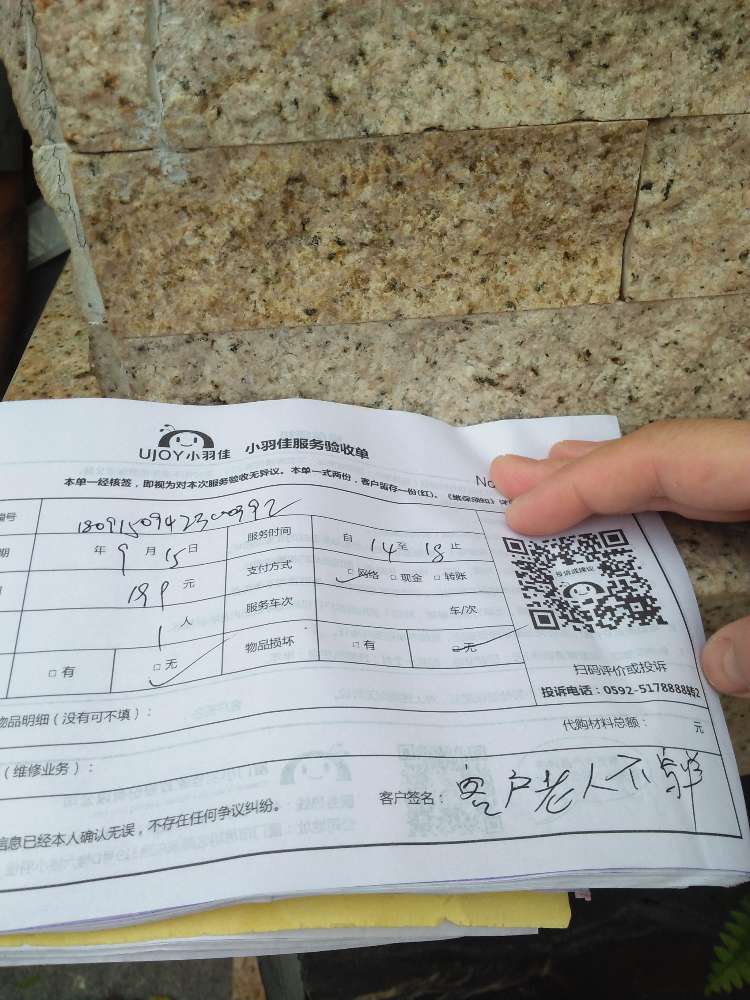 UJOY小羽佳 小羽佳服务验收单
No
本单一经核签，即视为对本次服务验收无异议。本单一式两份，客户留存一份(红)。《维保须知》详
编号 1809150942300992
期 年 9 月 15 日 服务时间 自 14 至 18 止
199 元 支付方式 □网络 □现金 □转账
1 人 服务车次 车/次
□有 □无 物品损坏 □有 □无
投诉或建议
扫码评价或投诉
投诉电话：0592-5178888转2
物品明细（没有可不填）：
代购材料总额： 元
（维修业务）：
信息已经本人确认无误，不存在任何争议纠纷。
客户签名： 客户老人不